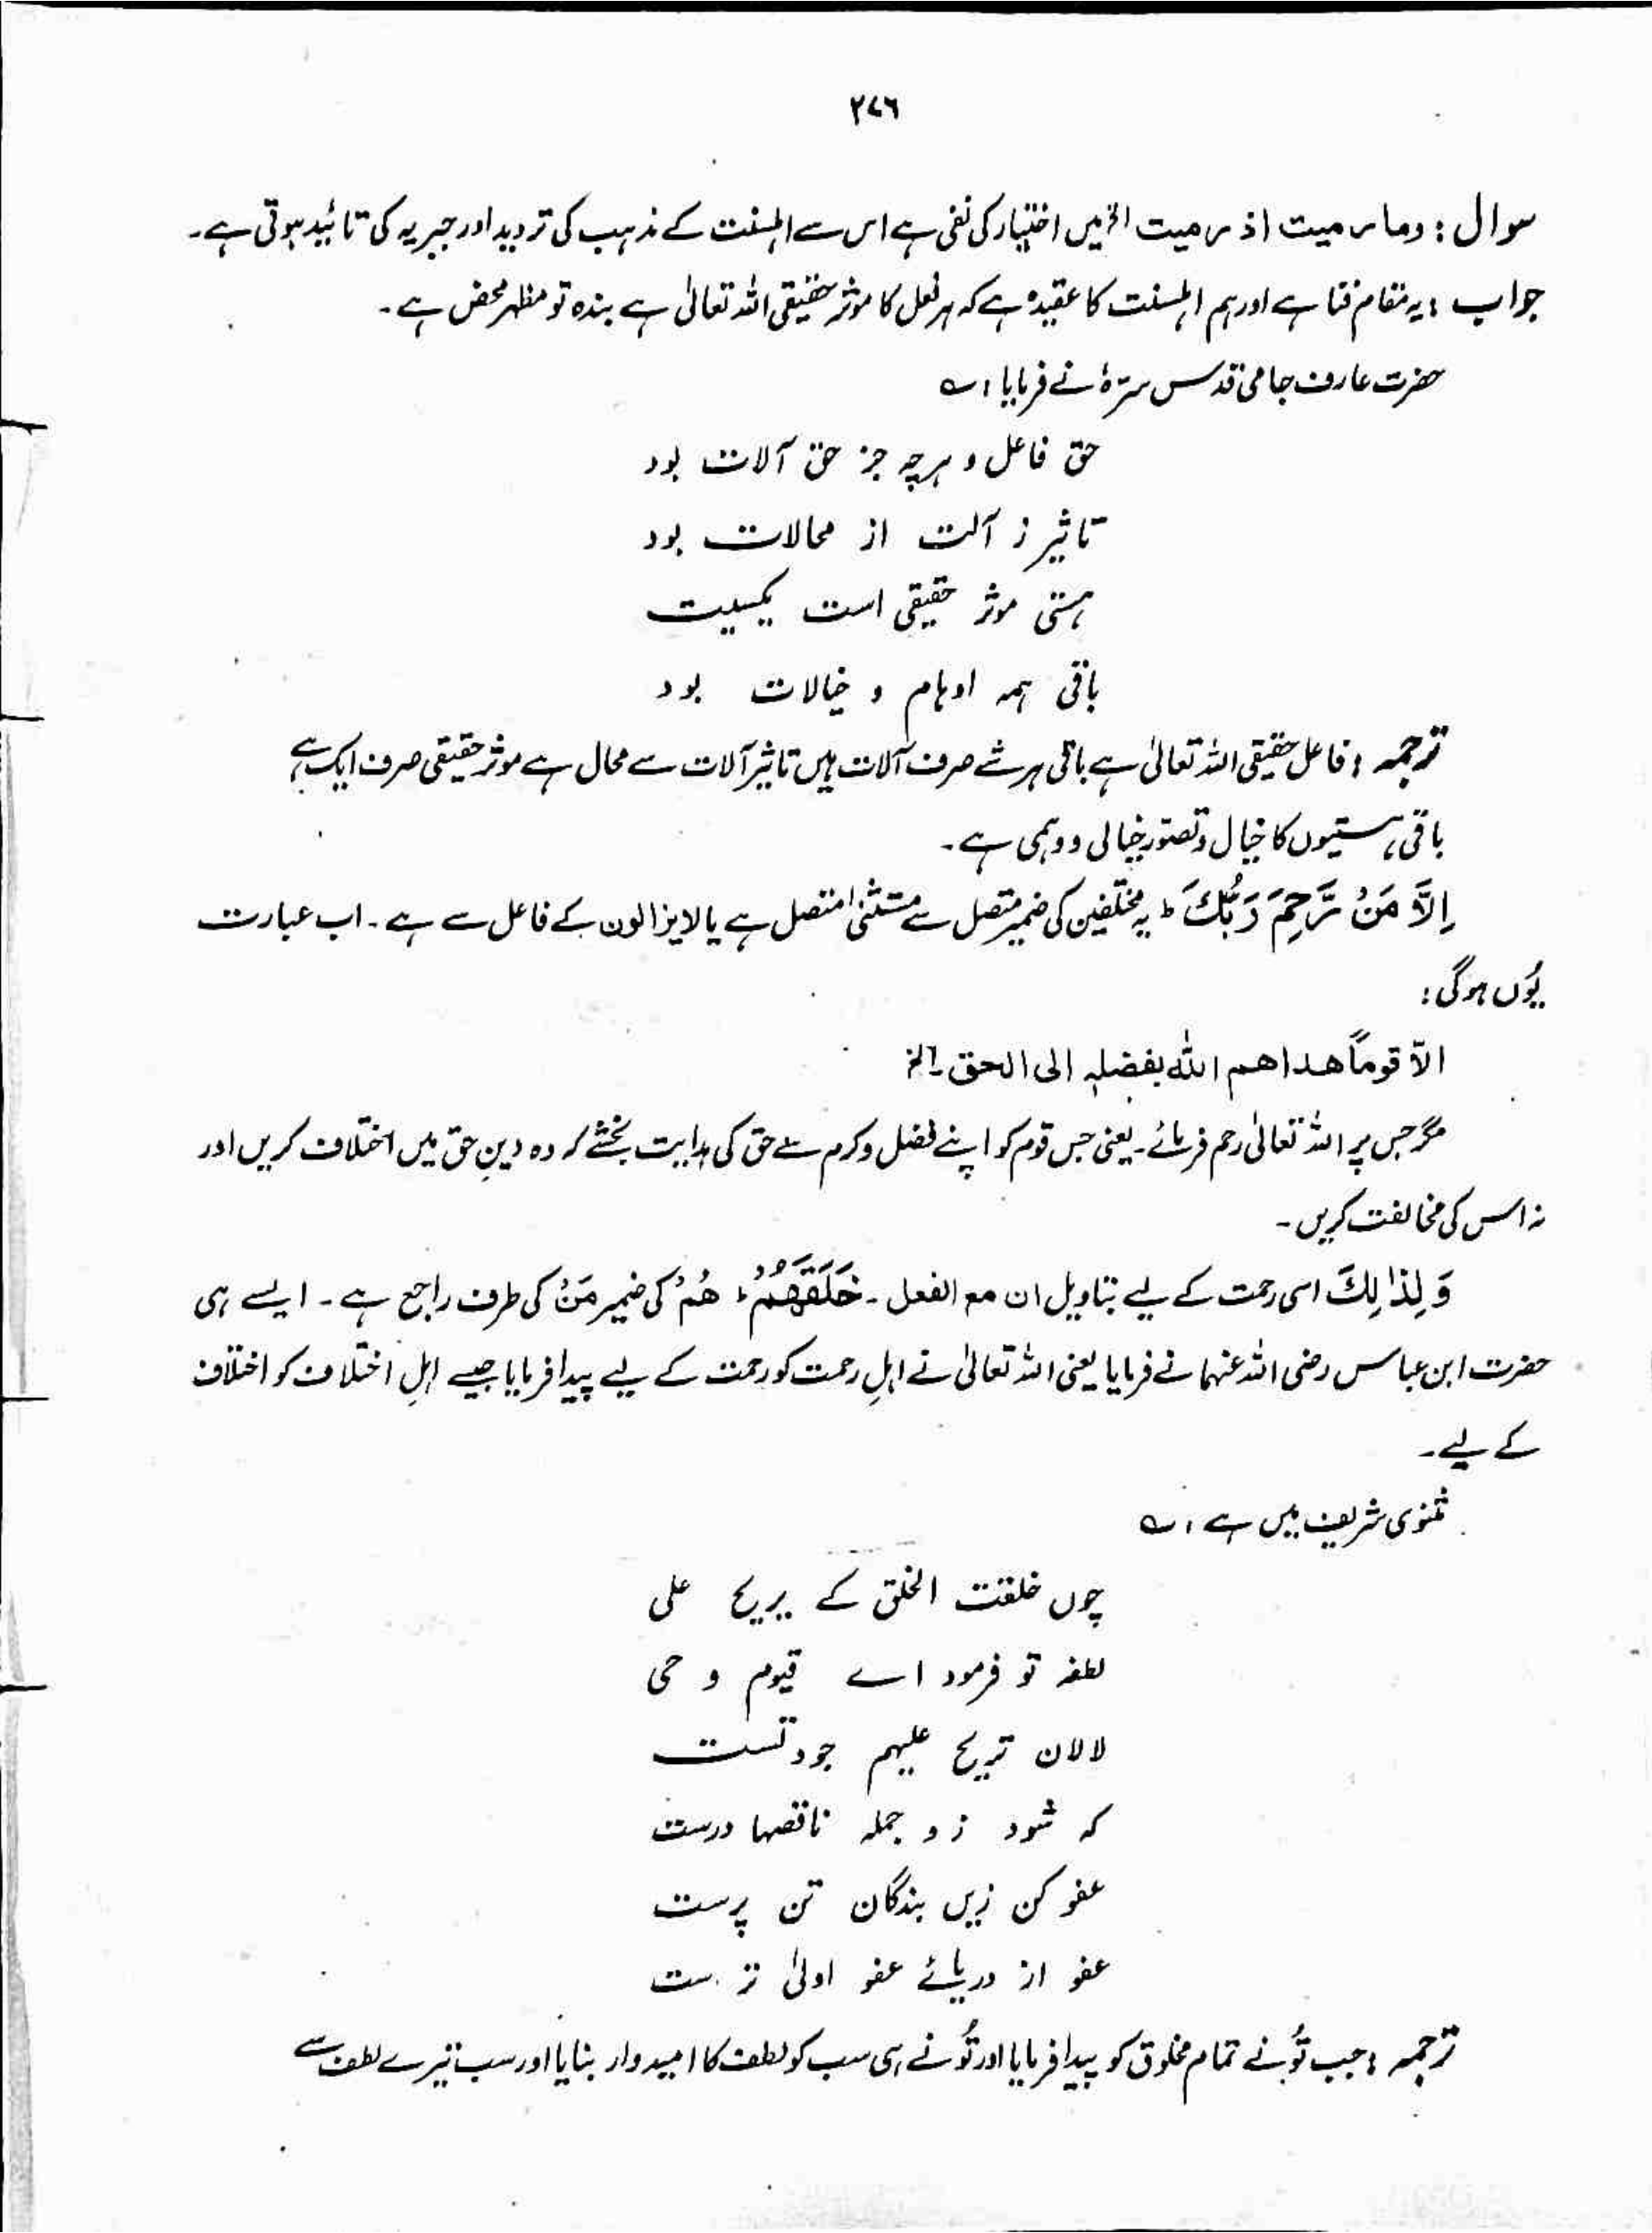 ٢٧٦
سوال : وما رمیت اذ رمیت الخ میں اختیار کی نفی ہے اس سے اہلسنت کے مذہب کی تردید اور جبریہ کی تائید ہوتی ہے۔
جواب : یہ مقام فنا ہے اور ہم اہلسنت کا عقیدہ ہے کہ ہر فعل کا موثر حقیقی اللہ تعالیٰ ہے بندہ تو مظہر محض ہے۔
حضرت عارف جامی قدس سرّہٗ نے فرمایا : ؎
حق فاعل و ہرچہ جز حق آلات بود
تاثیر ز آلت از محالات بود
ہستی موثر حقیقی است یکیست
باقی ہمہ اوہام و خیالات بود
ترجمہ : فاعل حقیقی اللہ تعالیٰ ہے باقی ہر شے صرف آلات ہیں تاثیر آلات سے محال ہے موثر حقیقی صرف ایک ہے
باقی ہستیوں کا خیال و تصوّر خیالی و وہمی ہے۔
اِلَّا مَنْ رَّحِمَ رَبُّكَ ط یہ مختلفین کی ضمیر متصل سے مستثنیٰ متصل ہے یا لایزالون کے فاعل سے ہے۔ اب عبارت
یُوں ہوگی :
الّا قوماً هداهم اللّٰه بفضله الى الحق الخ
مگر جس پر اللہ تعالیٰ رحم فرمائے۔ یعنی جس قوم کو اپنے فضل و کرم سے حق کی ہدایت بخشے کہ وہ دینِ حق میں اختلاف کریں اور
نہ اس کی مخالفت کریں۔
وَلِذٰلِكَ اسی رحمت کے لیے بتاویل ان مع الفعل۔ خَلَقَهُمْ ط هُمْ کی ضمیر مَنْ کی طرف راجع ہے۔ ایسے ہی
حضرت ابن عباس رضی اللہ عنہما نے فرمایا یعنی اللہ تعالیٰ نے اہلِ رحمت کو رحمت کے لیے پیدا فرمایا جیسے اہلِ اختلاف کو اختلاف
کے لیے۔
مثنوی شریف میں ہے : ؎
چوں خلقت الخلق کے یربح علی
لطف تو فرمود اے قیوم و حی
لالان تربح علیہم جود تست
کہ شود زو جملہ ناقصہا درست
عفو کن زیں بندگان تن پرست
عفو از دریائے عفو اولیٰ ترست
ترجمہ : جب تُو نے تمام مخلوق کو پیدا فرمایا اور تُو نے ہی سب کو لطف کا امیدوار بنایا اور سب تیرے لطف سے